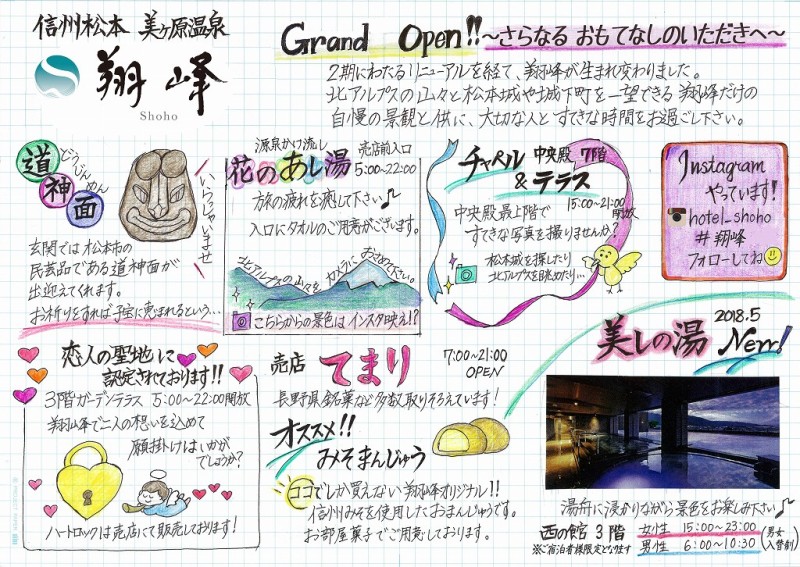 信州松本 美ヶ原温泉
翔峰
Shoho
Grand Open!!～さらなる おもてなしのいただきへ～
2期にわたるリニューアルを経て、翔峰が生まれ変わりました。
北アルプスの山々と松本城や城下町を一望できる翔峰だけの
自慢の景観と供に、大切な人とすてきな時間をお過ご下さい。
道神面
どうじんめん
いらっしゃいませ
玄関では松本市の
民芸品である道神面が
出迎えてくれます。
お祈りをすれば子宝に恵まれるという…
源泉かけ流し
花のあし湯
売店前入口
5:00～22:00
旅の疲れを癒して下さい♪
入口にタオルのご用意がございます。
北アルプスの山々をカメラにおさめて下さい。
こちらからの景色はインスタ映え!?
チャペル
&テラス
中央殿7階
15:00～21:00
開放
中央殿最上階で
すてきな写真を撮りませんか?
松本城を探したり
北アルプスを眺めたり…
Instagram
やっています!
hotel_shoho
#翔峰
フォローしてね
恋人の聖地に
認定されております!!
3階ガーデンテラス 5:00～22:00開放
翔峰で二人の想いを込めて
願掛けはいかが
でしょうか?
ハートロックは売店にて販売しております!
売店 てまり
7:00～21:00
OPEN
長野県銘菓など多数取りそろえています!
オススメ!!
みそまんじゅう
ココでしか買えない翔峰オリジナル!!
信州みそを使用したおまんじゅうです。
お部屋菓子でご用意しております。
美しの湯
2018.5
New!
湯舟に浸かりながら景色をお楽しみ下さい♪
西の館3階
※ご宿泊者様限定となります
女性 15:00～23:00
男性 6:00～10:30
(男女入替制)